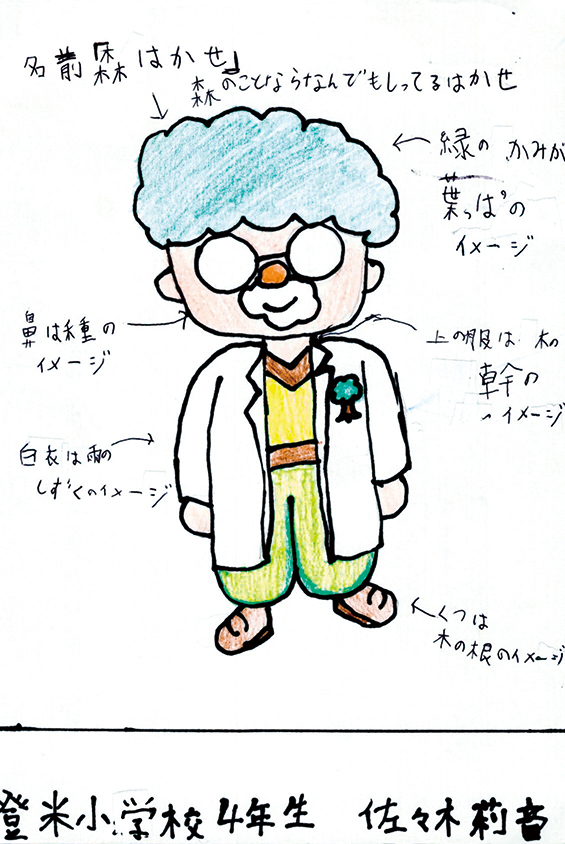 名前「森はかせ」
森のことならなんでもしってるはかせ
緑の かみが
葉っぱの
イメージ
鼻は種の
イメージ
上の服は 木の
幹の
イメージ
白衣は雨の
しずくのイメージ
くつは
木の根のイメージ
登米小学校4年生 佐々木莉音